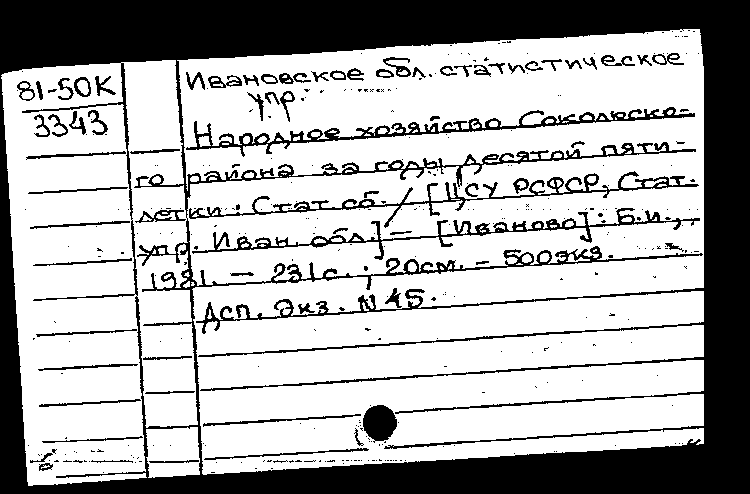 81-50К
3343
Ивановское обл. статистическое
упр.
Народное хозяйство Сокольско-
го района за годы десятой пяти-
летки: Стат. сб. / [ЦСУ РСФСР, Стат.
упр. Иван. обл.] — [Иваново]: Б.и.,
1981. — 231с. ; 20см. — 500экз.
Дсп. Экз. N 45.